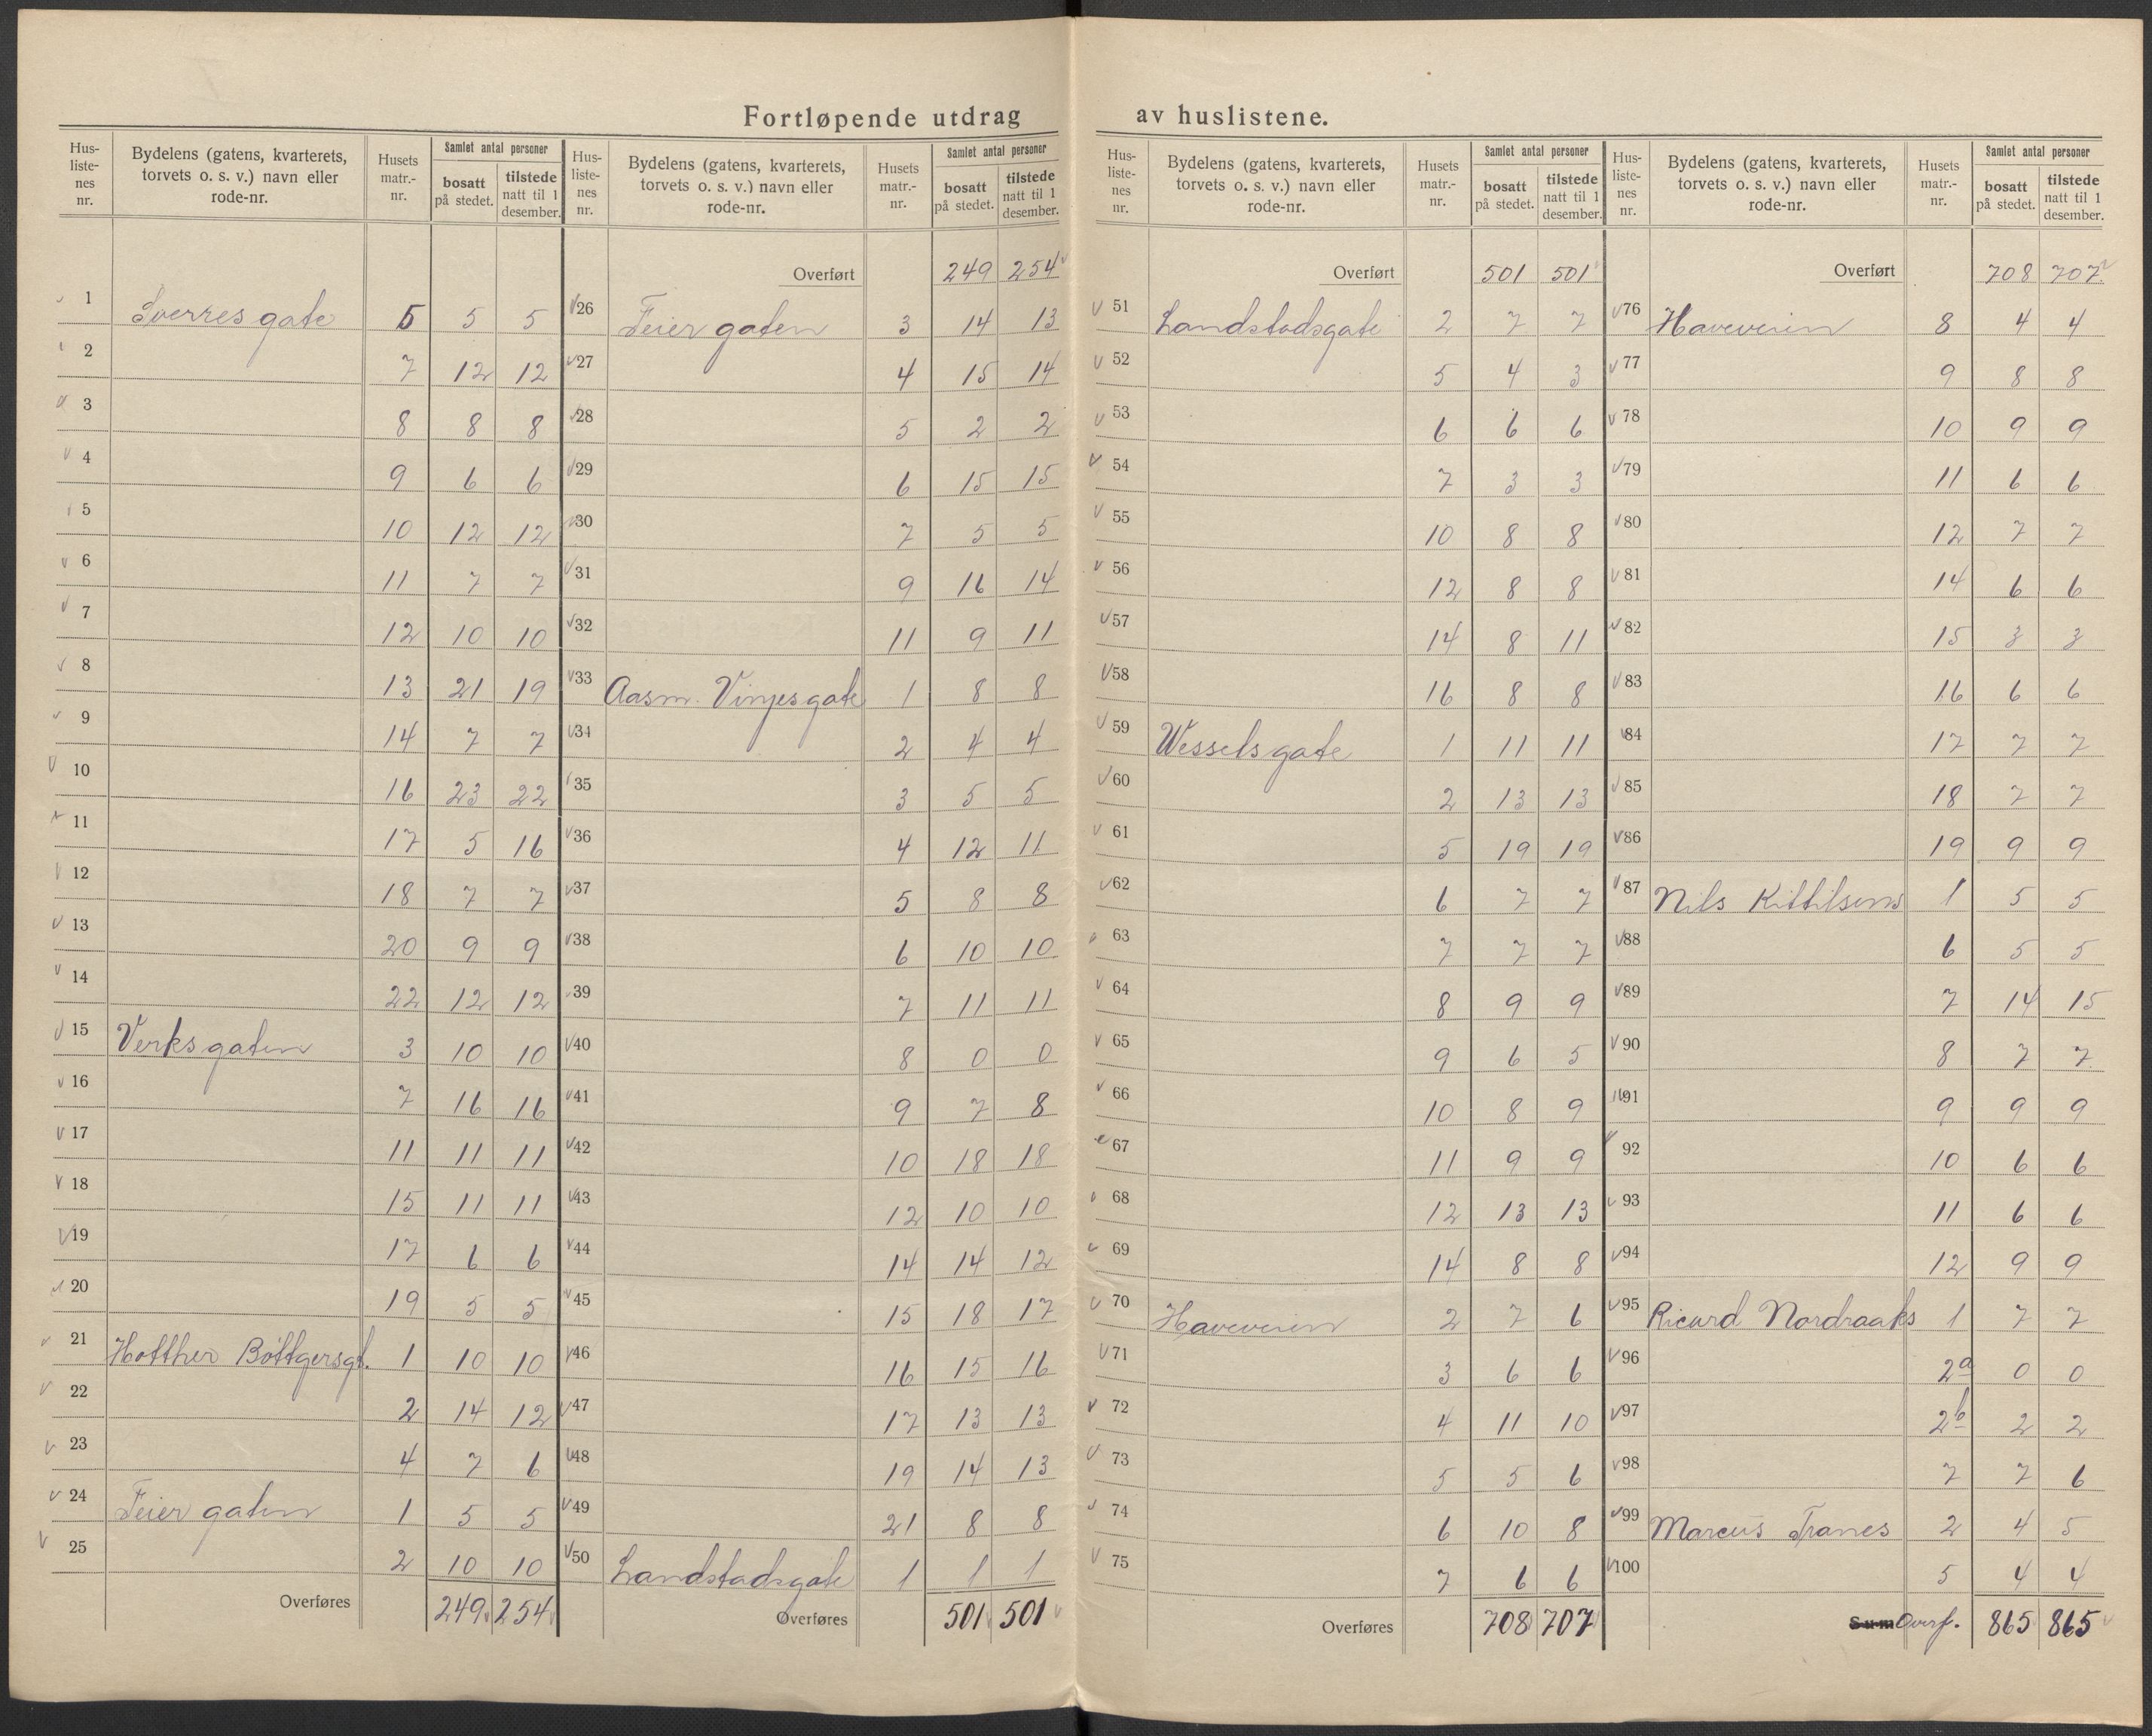 Fortløpende utdrag av huslistene.
Hus-listenes nr. | Bydelens (gatens, kvarterets, torvets o. s. v.) navn eller rode-nr. | Husets matr.-nr. | Samlet antal personer bosatt på stedet. | tilstede natt til 1 desember.
1 Sverres gate 5 5 5
2 7 12 12
3 8 8 8
4 9 6 6
5 10 12 12
6 11 7 7
7 12 10 10
8 13 21 19
9 14 7 7
10 16 23 22
11 17 5 16
12 18 7 7
13 20 9 9
14 22 12 12
15 Verksgaten 3 10 10
16 7 16 16
17 11 11 11
18 15 11 11
19 17 6 6
20 19 5 5
21 Hotther Bøttgersgt. 1 10 10
22 2 14 12
23 4 7 6
24 Feiergaten 1 5 5
25 2 10 10
Overføres 249 254
Hus-listenes nr. | Bydelens (gatens, kvarterets, torvets o. s. v.) navn eller rode-nr. | Husets matr.-nr. | Samlet antal personer bosatt på stedet. | tilstede natt til 1 desember.
Overført 249 254
26 Feiergaten 3 14 13
27 4 15 14
28 5 2 2
29 6 15 15
30 7 5 5
31 9 16 14
32 11 9 11
33 Aasm. Vinjesgate 1 8 8
34 2 4 4
35 3 5 5
36 4 12 11
37 5 8 8
38 6 10 10
39 7 11 11
40 8 0 0
41 9 7 8
42 10 18 18
43 12 10 10
44 14 14 12
45 15 18 17
46 16 15 16
47 17 13 13
48 19 14 13
49 21 8 8
50 Landstadsgate 1 1 1
Overføres 501 501
Hus-listenes nr. | Bydelens (gatens, kvarterets, torvets o. s. v.) navn eller rode-nr. | Husets matr.-nr. | Samlet antal personer bosatt på stedet. | tilstede natt til 1 desember.
Overført 501 501
51 Landstadsgate 2 7 7
52 5 4 3
53 6 6 6
54 7 3 3
55 10 8 8
56 12 8 8
57 14 8 11
58 16 8 8
59 Wesselsgate 1 11 11
60 2 13 13
61 5 19 19
62 6 7 7
63 7 7 7
64 8 9 9
65 9 6 5
66 10 8 9
67 11 9 9
68 12 13 13
69 14 8 8
70 Haveveien 2 7 6
71 3 6 6
72 4 11 10
73 5 5 6
74 6 10 8
75 7 6 6
Overføres 708 707
Hus-listenes nr. | Bydelens (gatens, kvarterets, torvets o. s. v.) navn eller rode-nr. | Husets matr.-nr. | Samlet antal personer bosatt på stedet. | tilstede natt til 1 desember.
Overført 708 707
76 Haveveien 8 4 4
77 9 8 8
78 10 9 9
79 11 6 6
80 12 7 7
81 14 6 6
82 15 3 3
83 16 6 6
84 17 7 7
85 18 7 7
86 19 9 9
87 Nils Kittilsens 1 5 5
88 6 5 5
89 7 14 15
90 8 7 7
91 9 9 9
92 10 6 6
93 11 6 6
94 12 9 9
95 Ricard Nordraaks 1 7 7
96 2a 0 0
97 2b 2 2
98 7 7 6
99 Marcus Tranes 2 4 5
100 5 4 4
Sum Overf. 865 865